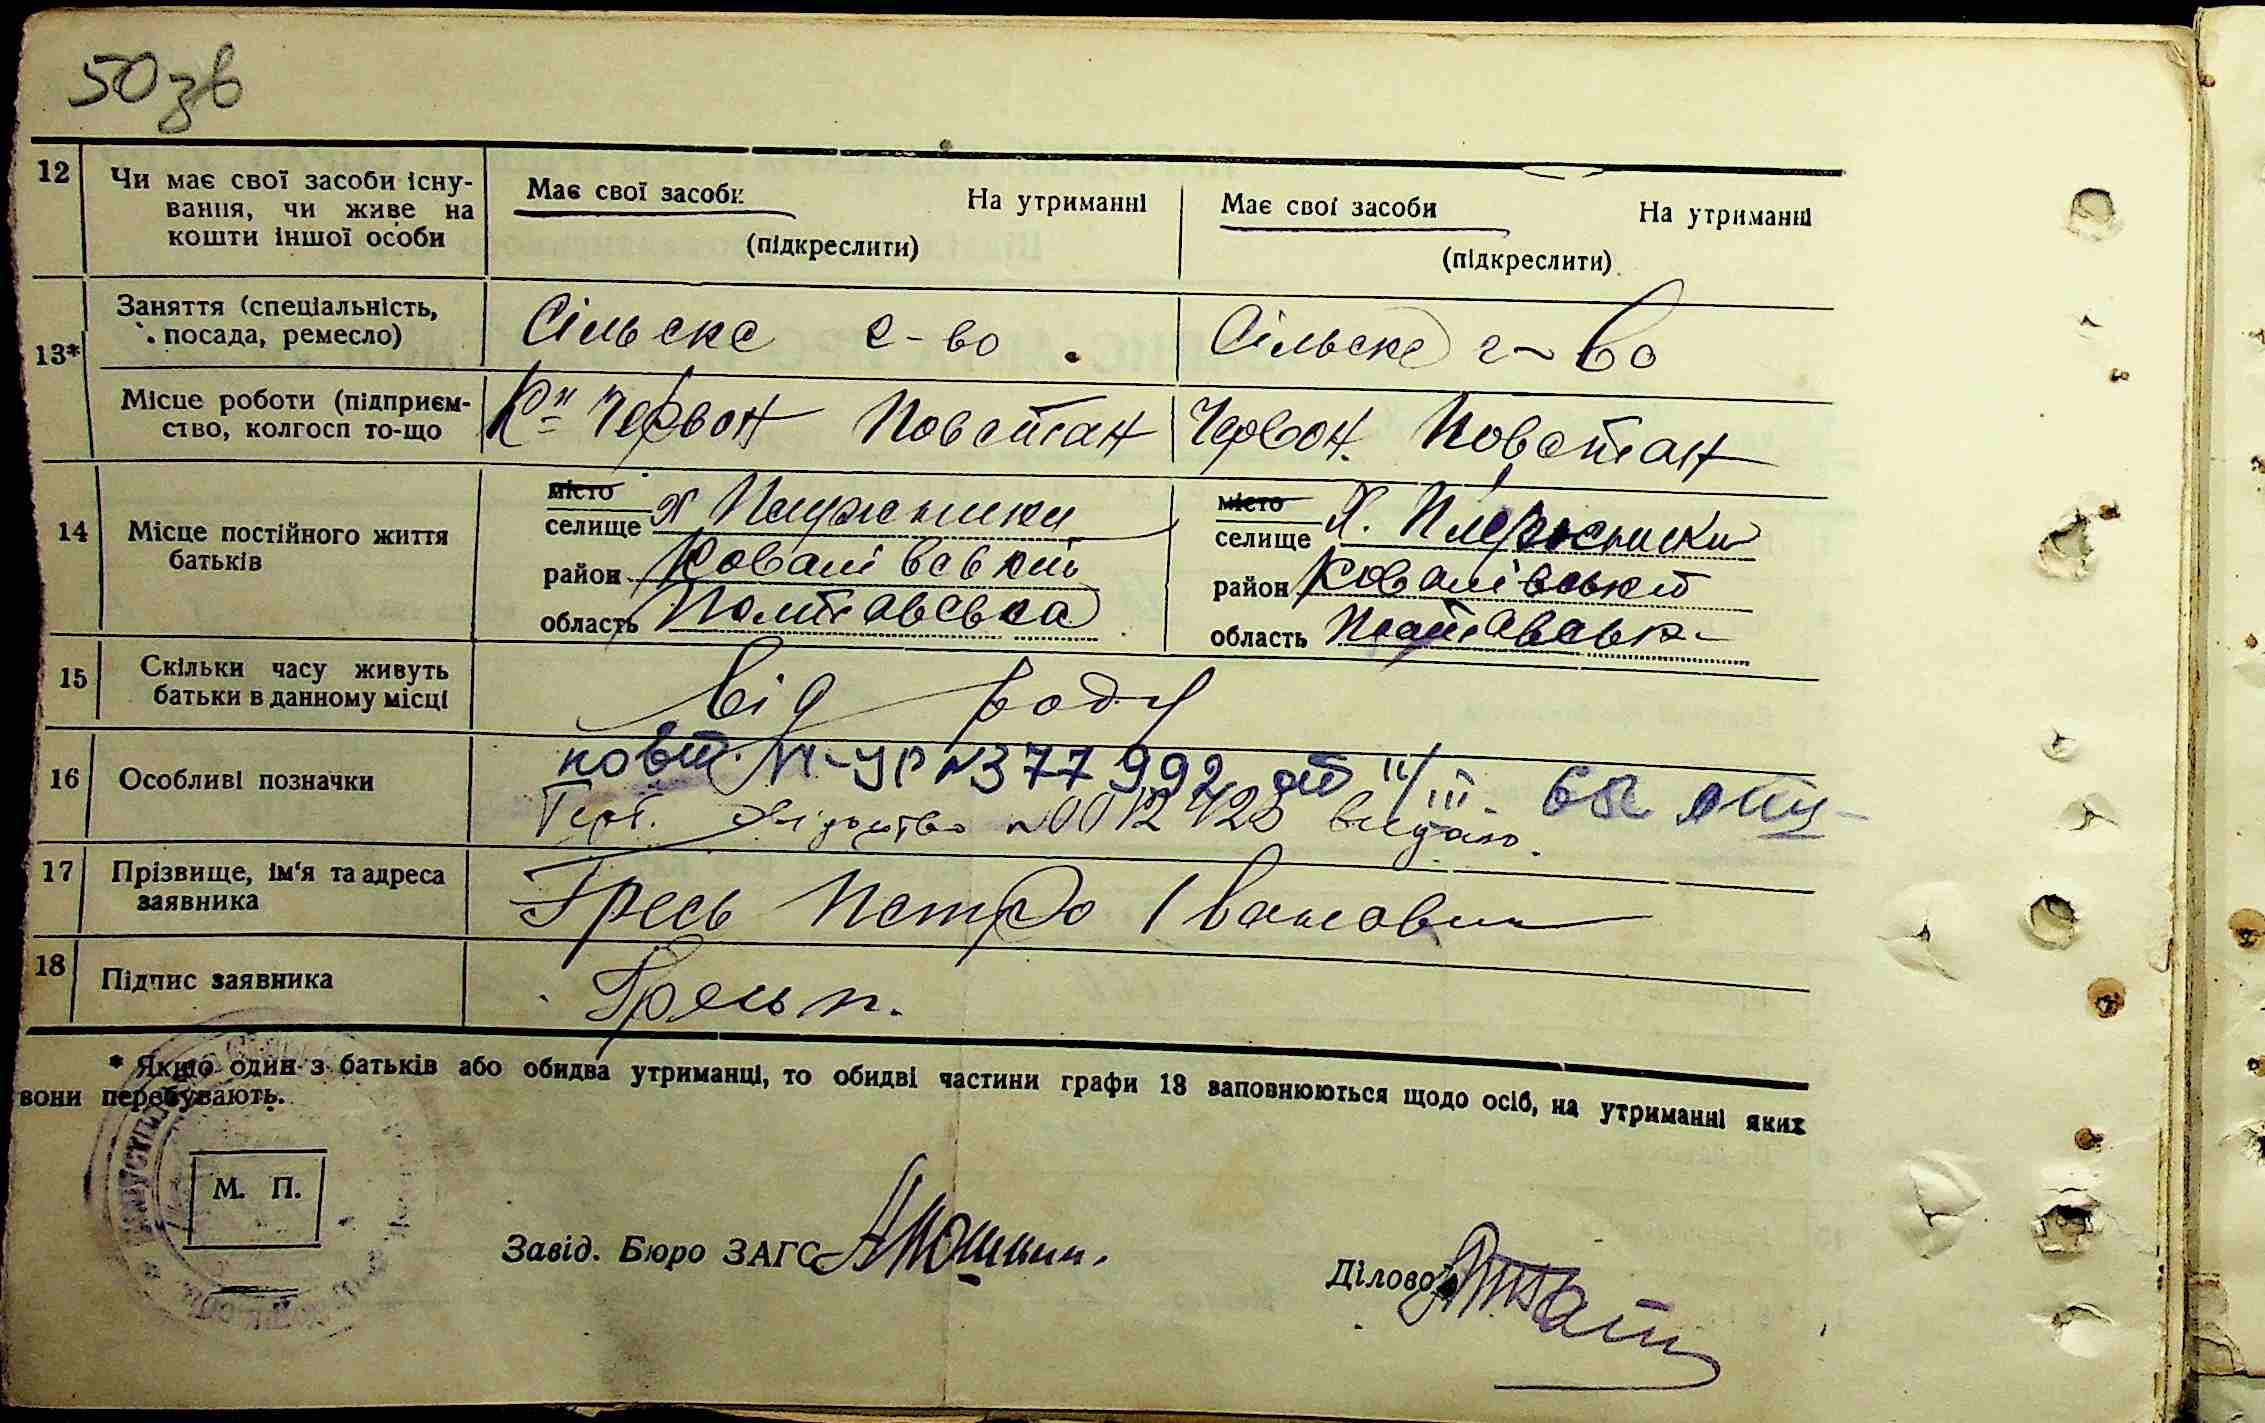 50зв
12 Чи має свої засоби існу-
вання, чи живе на
кошти іншої особи
Має свої засоби На утриманні
(підкреслити)
Має свої засоби На утриманні
(підкреслити)
13*
Заняття (спеціальність,
посада, ремесло)
Сільске г-во
Сільске г-во
Місце роботи (підприєм-
ство, колгосп то-що
Червон Повстан
Червон. Повстан
14 Місце постійного життя
батьків
місто
селище х
район Ковалівський
область Полтавська
місто
селище х.
район Ковалівський
область
15 Скільки часу живуть
батьки в данному місці
від роду
16 Особливі позначки
повт. № 377992 від
видано.
17 Прізвище, ім'я та адреса
заявника
Гресь Петро Іванович
18 Підпис заявника
Гресь п.
* Якщо один з батьків або обидва утриманці, то обидві частини графи 13 заповнюються щодо осіб, на утриманні яких
вони перебувають.
М. П.
Завід. Бюро ЗАГС
Діловод